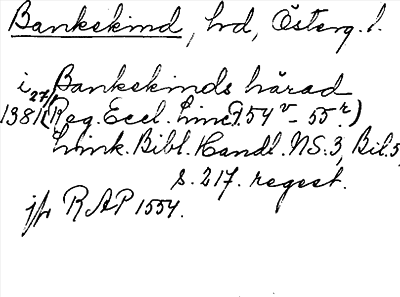 Bankekind, hd, Österg. l.
i Bankekinds härad
27/1
1381 (Reg. Eccl. Linc. f. 54v - 55r)
Link. Bibl. Handl. NS. 3, Bil. 5
s. 217. regest.
jfr RAP 1554.